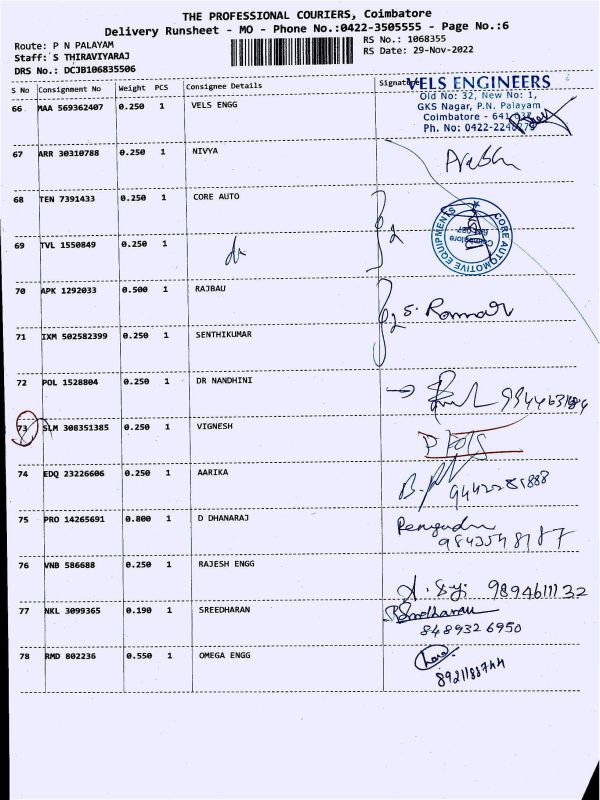 THE PROFESSIONAL COURIERS, Coimbatore
Delivery Runsheet - MO - Phone No.:0422-3505555 - Page No.:6
Route: P N PALAYAM
RS No.: 1068355
Staff: S THIRAVIYARAJ
RS Date: 29-Nov-2022
DRS No.: DCJB106835506
S No Consignment No Weight PCS Consignee Details Signature
VELS ENGINEERS
Old No: 32, New No: 1,
GKS Nagar, P.N. Palayam
Coimbatore - 641 037
Ph. No: 0422-
66 MAA 569362407 0.250 1 VELS ENGG
67 ARR 30310788 0.250 1 NIVYA
Prabhu
68 TEN 7391433 0.250 1 CORE AUTO
CORE AUTOMOTIVE EQUIPMENTS
Coimbatore
2
69 TVL 1550849 0.250 1
70 APK 1292033 0.500 1 RAJBAU
2 S.
71 IXM 502582399 0.250 1 SENTHIKUMAR
72 POL 1528804 0.250 1 DR NANDHINI
73 SLM 308351385 0.250 1 VIGNESH
74 EDQ 23226606 0.250 1 AARIKA
75 PRO 14265691 0.800 1 D DHANARAJ
76 VNB 586688 0.250 1 RAJESH ENGG
9894611132
77 NKL 3099365 0.190 1 SREEDHARAN
Sreedharan
8489326950
78 RMD 802236 0.550 1 OMEGA ENGG